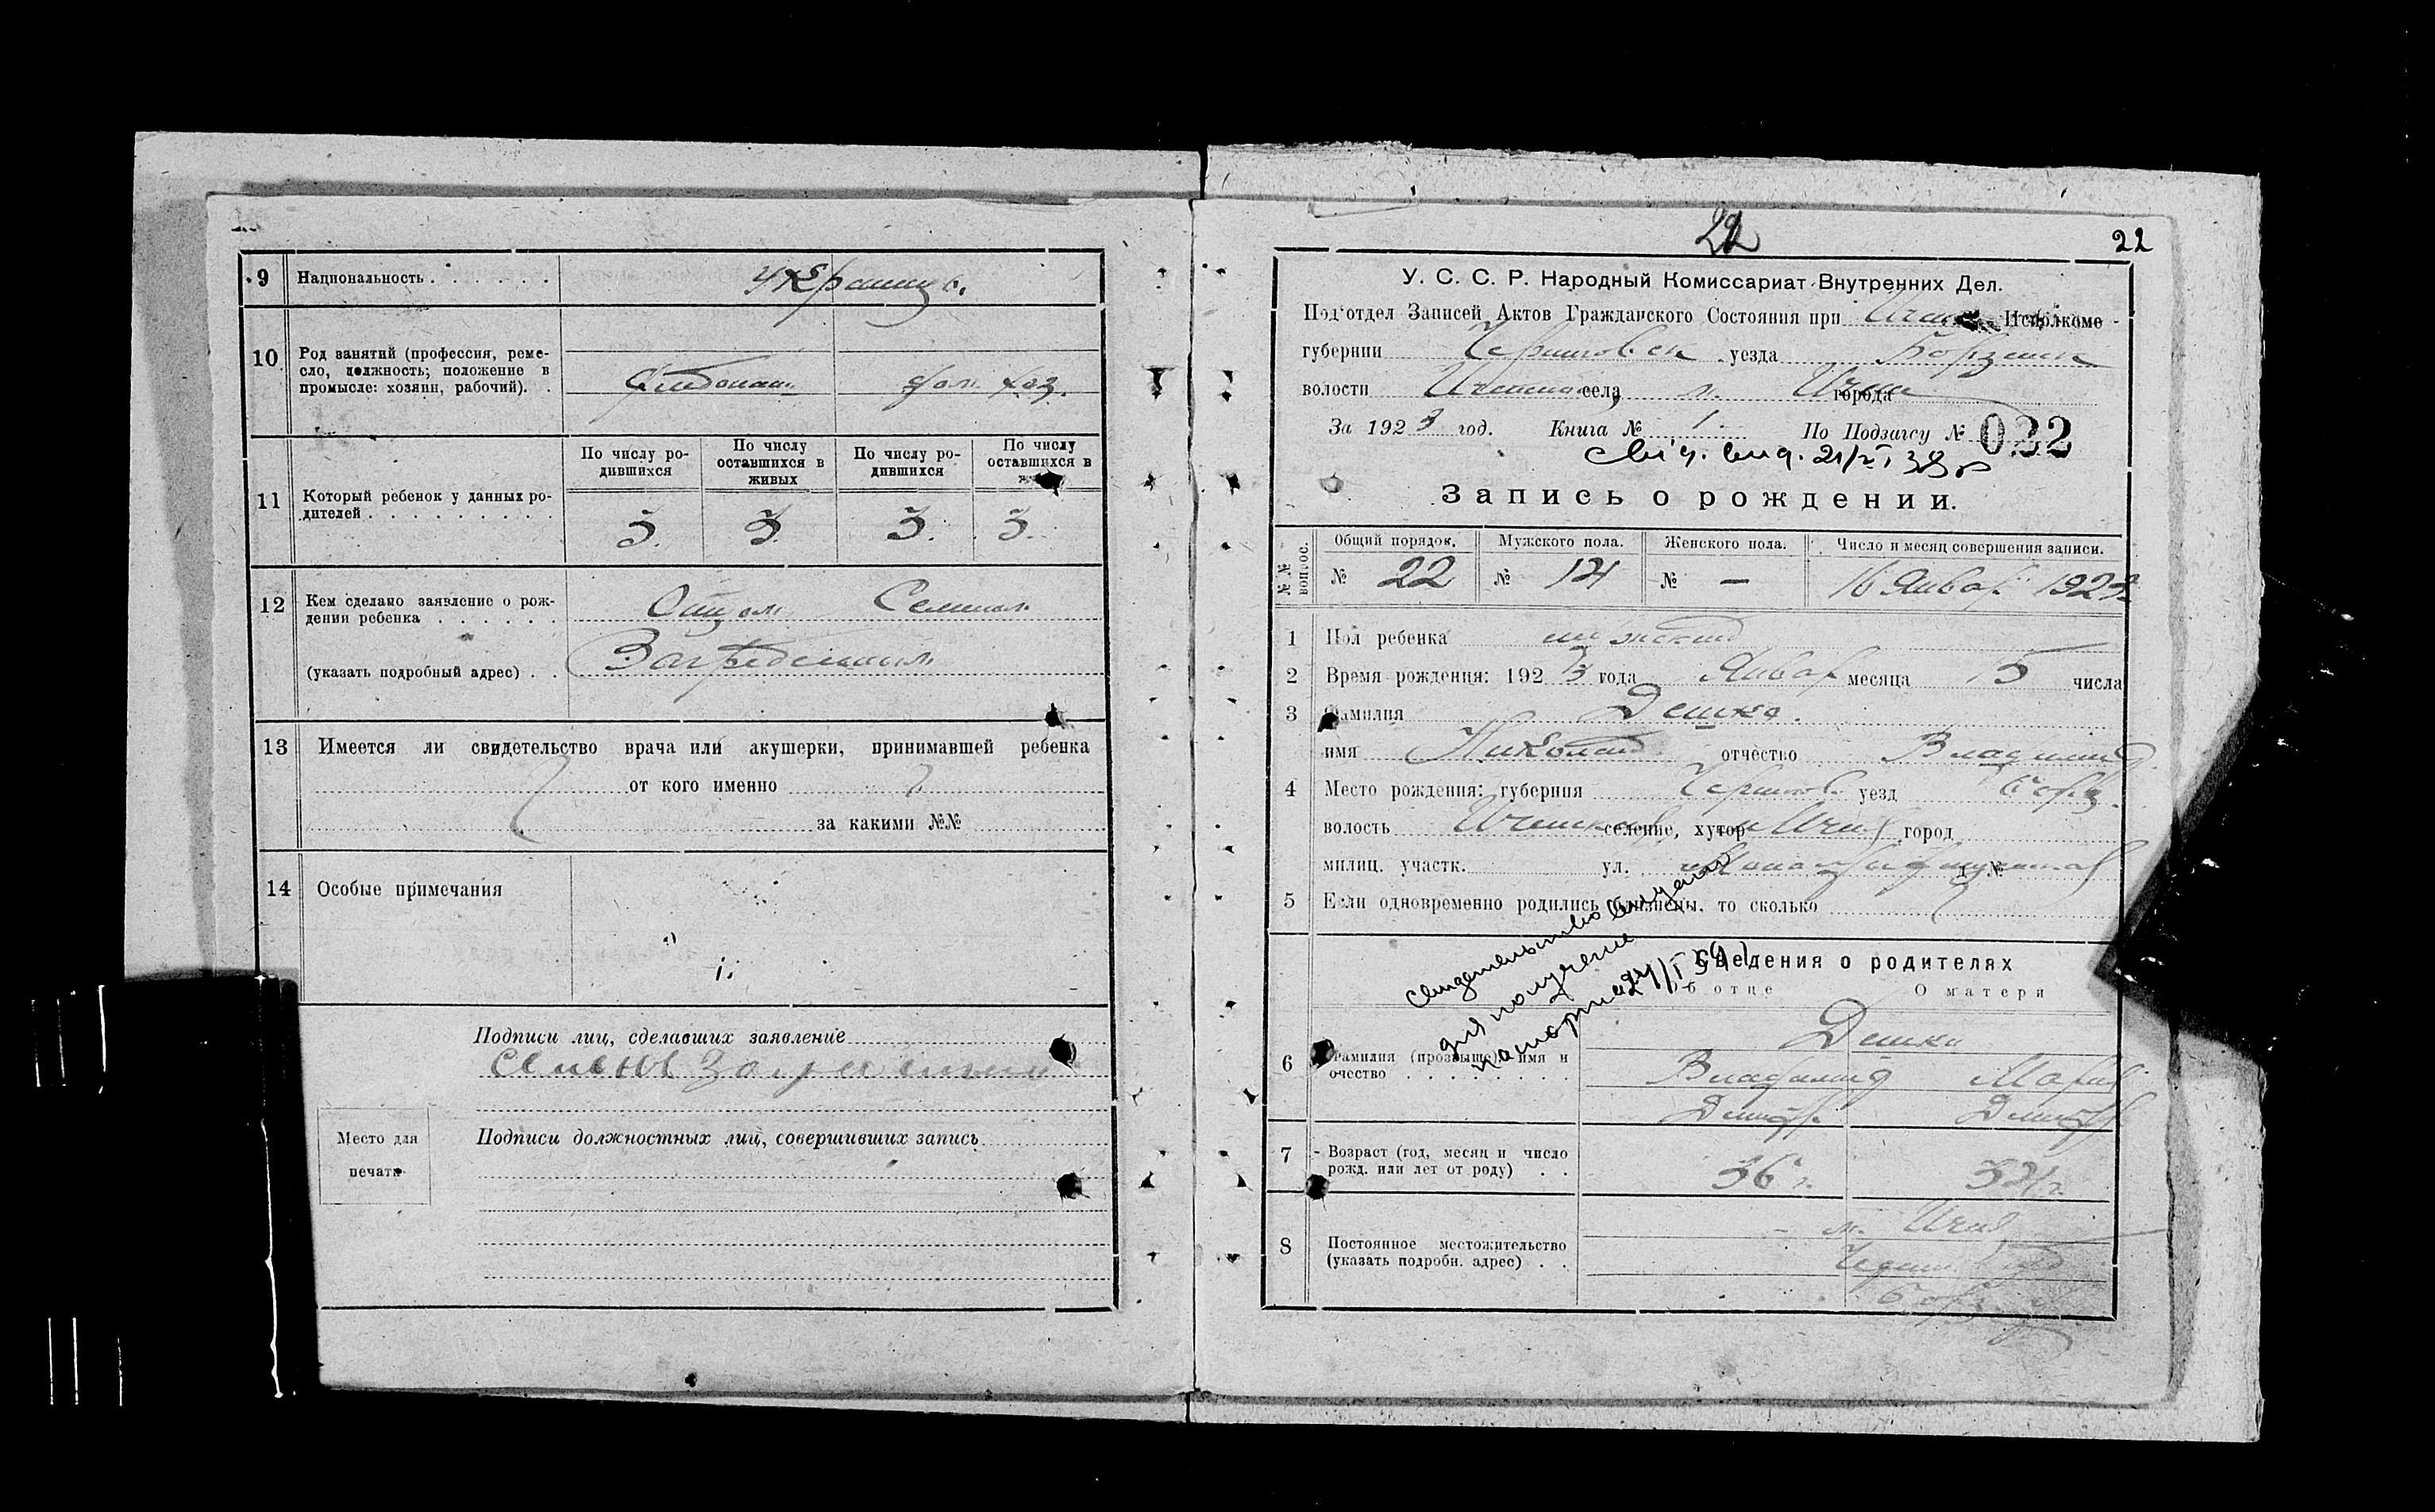 9 Национальность . . . . . . Украинцы.
10 Род занятий (профессия, реме-
сло, должность; положение в
промысле: хозяин, рабочий). .
Хлебопаш. дом. хоз.
11 Который ребенок у данных ро-
дителей . . . . . . . . . .
По числу ро-
дившихся
По числу
оставшихся в
живых
По числу ро-
дившихся
По числу
оставшихся в
3. 3. 3. 3.
12 Кем сделано заявление о рож-
дении ребенка . . . . . .
Отцом Семеном
(указать подробный адрес) . .
13 Имеется ли свидетельство врача или акушерки, принимавшей ребенка
от кого именно
за какими №№
14 Особые примечания
Подписи лиц, сделавших заявление
Место для
печати
Подписи должностных лиц, совершивших запись
22
22
У. С. С. Р. Народный Комиссариат Внутренних Дел.
Под‘отдел Записей Актов Гражданского Состояния при Исполкоме
губернии Черниговск уезда Борзенск
волости села м. города
За 1923 год. Книга № 1. По Подзагсу № 022
Запись о рождении.
№№ вопрос.
Общий порядок. Мужского пола. Женского пола. Число и месяц совершения записи.
№ 22 № 14 № — 16 Январ. 1923
1 Пол ребенка мужской
2 Время рождения: 1923 года Январ месяца 15 числа
3 Фамилия Дешко.
имя Николай отчество Владимир
4 Место рождения: губерния Чернигов. уезд Борз.
волость селение, хутор м Ичня город
милиц. участк. ул. д. №
5 Если одновременно родились близнецы, то сколько
Свидетельство выдано
для получения
паспорта
Сведения о родителях
Об отце О матери
6 Фамилия (прозвище), имя и
очество . . . . . . . .
Дешко
Владимир Мария
Дмитр. Дмитр
7 Возраст (год, месяц и число
рожд. или лет от роду) . .
36 г. 34 г.
8 Постоянное местожительство
(указать подробн. адрес) . .
м. Ичня
Борз. у